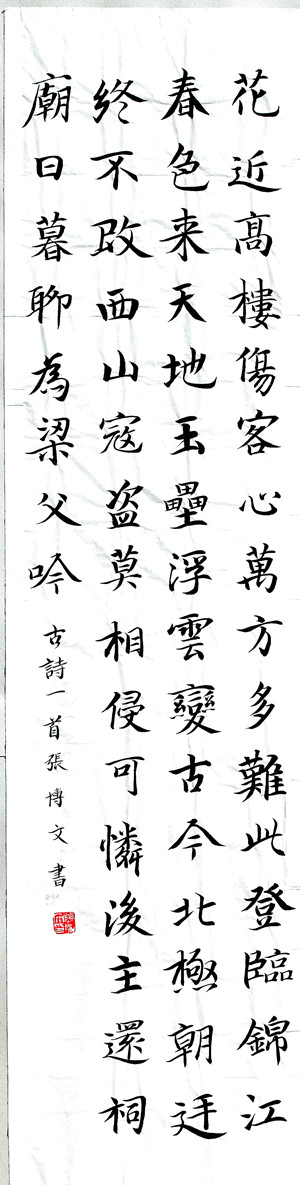 花近髙樓傷客心萬方多難此登臨錦江
春色来天地玉壘浮雲變古今北極朝廷
終不改西山寇盗莫相侵可憐後主還祠
廟日暮聊為梁父吟
古詩一首張博文書